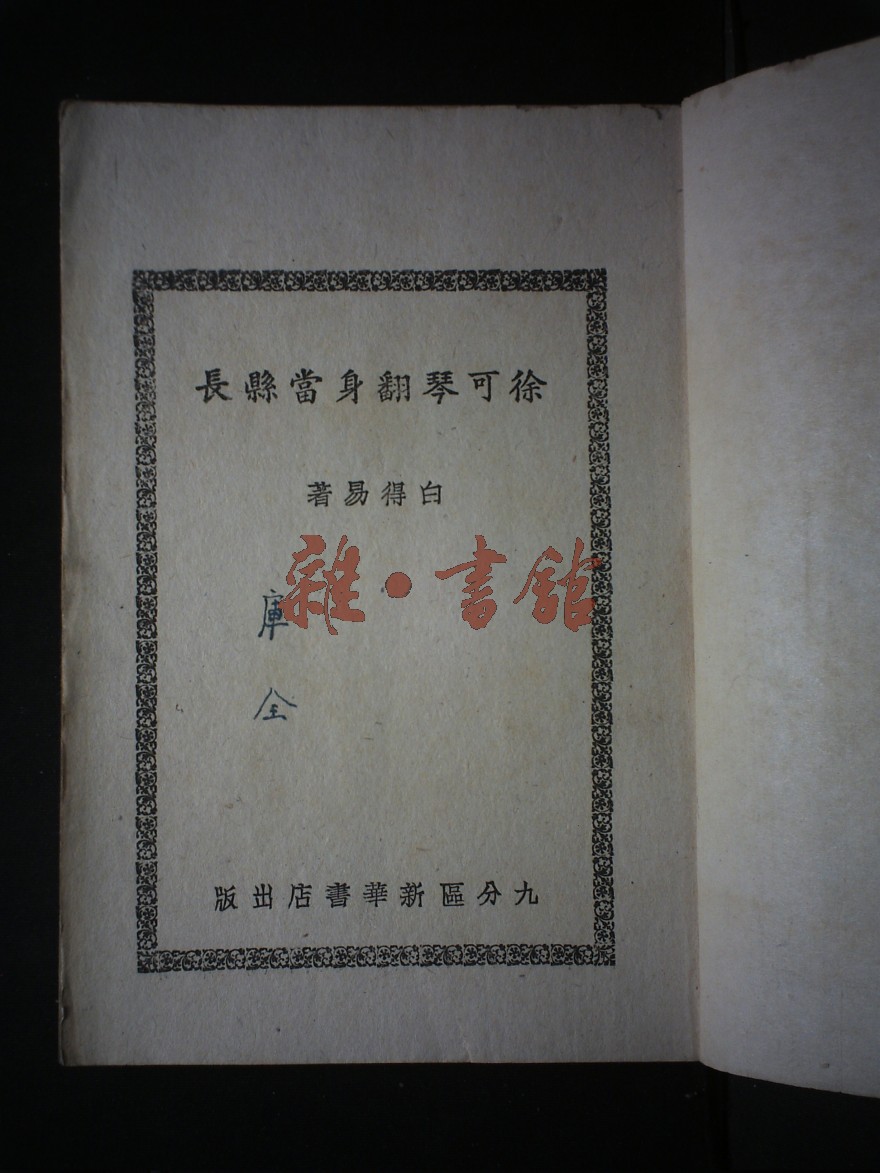 徐可琴翻身當縣長
白得易著
雜·書館
庫
全
九分區新華書店出版